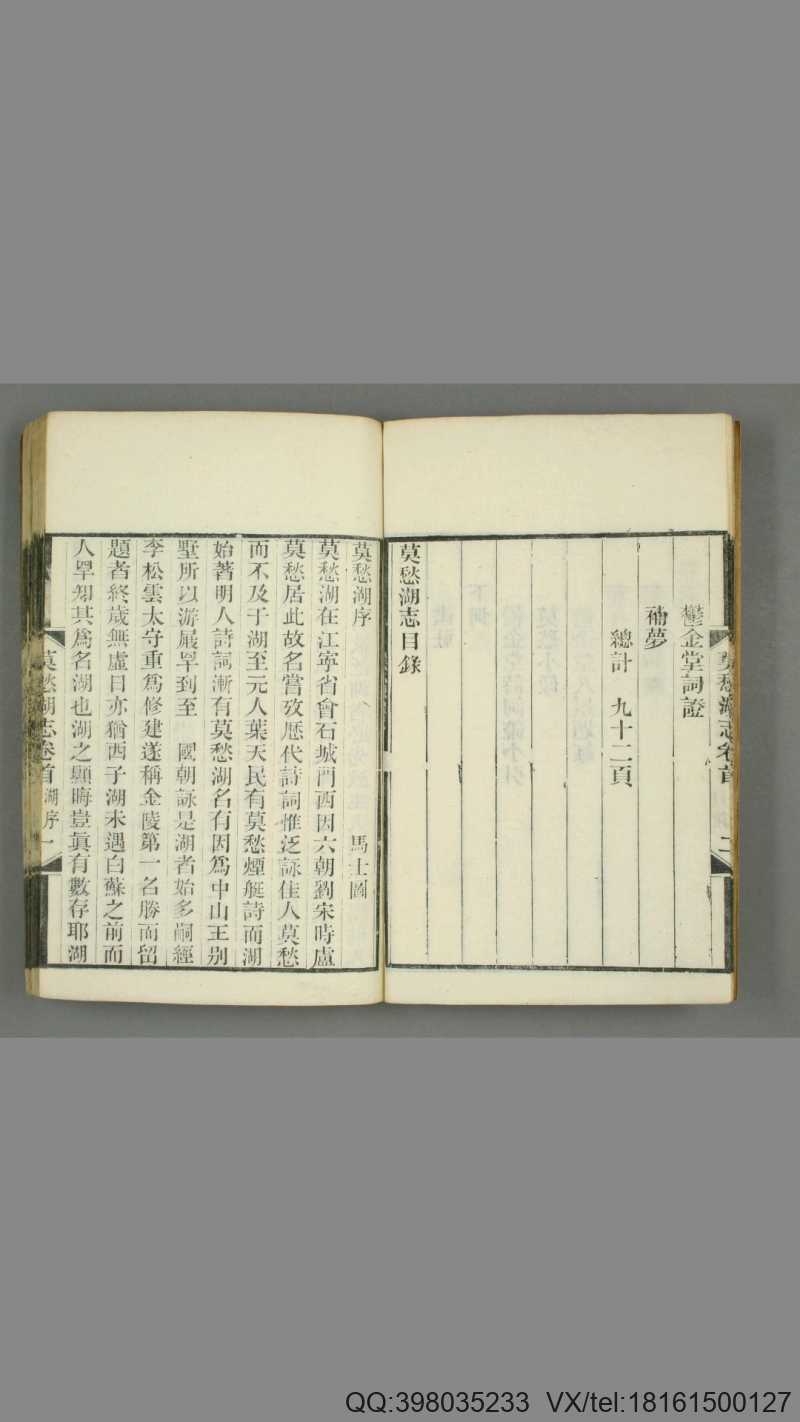 鬱金堂詞證
補夢
總計 九十二頁
莫愁湖志目錄
莫愁湖志卷首 二
莫愁湖序 馬士圖
莫愁湖在江寜省會石城門西因六朝劉宋時盧
莫愁居此故名嘗攷歴代詩詞惟泛詠佳人莫愁
而不及于湖至元人葉天民有莫愁煙艇詩而湖
始著明人詩詞漸有莫愁湖名有因爲中山王别
墅所以游屐罕到至 國朝詠是湖者始多嗣經
李松雲太守重爲修建遂稱金陵第一名勝而留
題者終歳無虛日亦猶西子湖未遇白蘇之前而
人罕知其爲名湖也湖之顯晦豈眞有數存耶湖
莫愁湖志卷首 湖序 一
QQ:398035233 VX/tel:18161500127